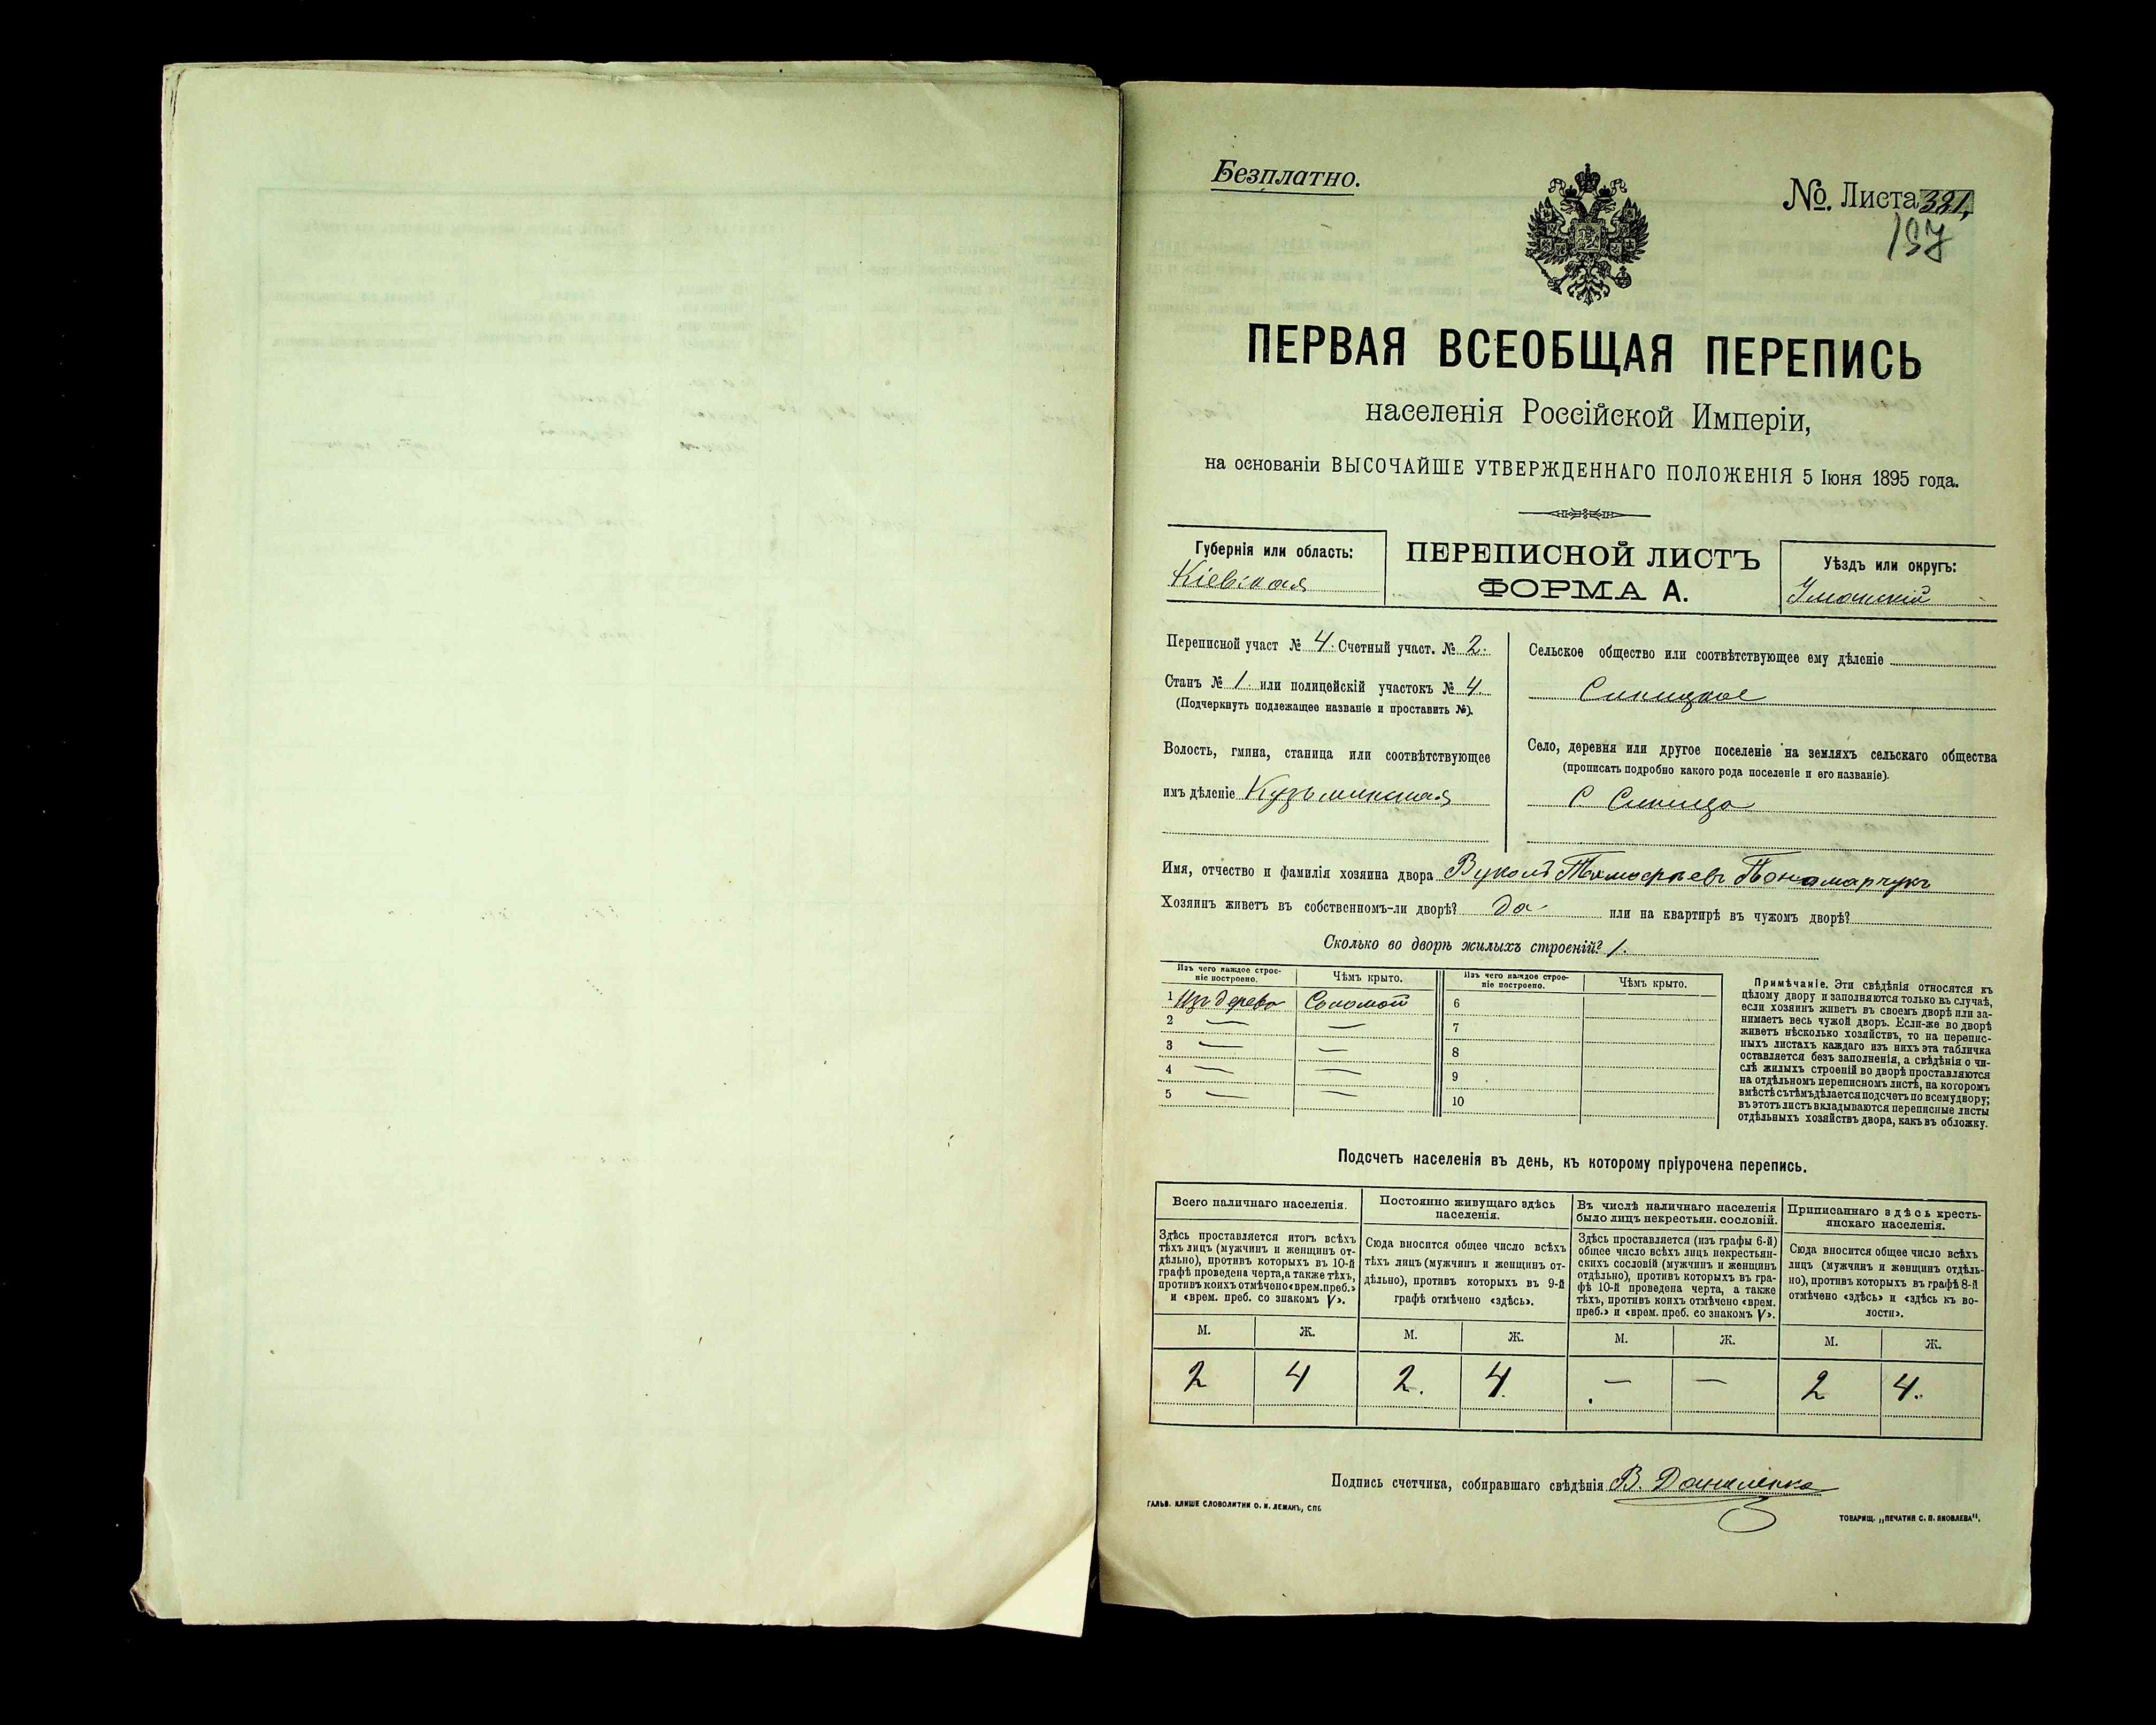 Безплатно.
№. Листа 381,
197
ПЕРВАЯ ВСЕОБЩАЯ ПЕРЕПИСЬ
населенія Россійской Имперіи,
на основаніи ВЫСОЧАЙШЕ УТВЕРЖДЕННАГО ПОЛОЖЕНІЯ 5 Іюня 1895 года.
Губернія или область:
Кіевская
ПЕРЕПИСНОЙ ЛИСТЪ
ФОРМА А.
Уѣздъ или округъ:
Уманскій
Переписной участ № 4. Счетный участ. № 2.
Станъ № 1. или полицейскій участокъ № 4
(Подчеркнуть подлежащее названіе и проставить №).
Волость, гмина, станица или соотвѣтствующее
имъ дѣленіе Кузьминская
Сельское общество или соотвѣтствующее ему дѣленіе
Синицкое
Село, деревня или другое поселеніе на земляхъ сельскаго общества
(прописать подробно какого рода поселеніе и его названіе).
С Синица
Имя, отчество и фамилія хозяина двора Вуколъ Тимофѣевъ Пономарчукъ
Хозяинъ живетъ въ собственномъ-ли дворѣ? да или на квартирѣ въ чужомъ дворѣ?
Сколько во дворѣ жилыхъ строеній? 1.
Изъ чего каждое строе-
ніе построено.
Чѣмъ крыто.
Изъ чего каждое строе-
ніе построено.
Чѣмъ крыто.
1 Изъ дерева Соломой 6
2 — — 7
3 — — 8
4 — — 9
5 — — 10
Примѣчаніе. Эти свѣдѣнія относятся къ
цѣлому двору и заполняются только въ случаѣ,
если хозяинъ живетъ въ своемъ дворѣ или за-
нимаетъ весь чужой дворъ. Если-же во дворѣ
живетъ нѣсколько хозяйствъ, то на перепис-
ныхъ листахъ каждаго изъ нихъ эта табличка
оставляется безъ заполненія, а свѣдѣнія о чи-
слѣ жилыхъ строеній во дворѣ проставляются
на отдѣльномъ переписномъ листѣ, на которомъ
вмѣстѣ съ тѣмъ дѣлается подсчетъ по всему двору;
въ этотъ листъ вкладываются переписные листы
отдѣльныхъ хозяйствъ двора, какъ въ обложку.
Подсчетъ населенія въ день, къ которому пріурочена перепись.
Всего наличнаго населенія.
Здѣсь проставляется итогъ всѣхъ
тѣхъ лицъ (мужчинъ и женщинъ от-
дѣльно), противъ которыхъ въ 10-й
графѣ проведена черта, а также тѣхъ,
противъ коихъ отмѣчено «врем. преб.»
и «врем. преб. со знакомъ V».
Постоянно живущаго здѣсь
населенія.
Сюда вносится общее число всѣхъ
тѣхъ лицъ (мужчинъ и женщинъ от-
дѣльно), противъ которыхъ въ 9-й
графѣ отмѣчено «здѣсь».
Въ числѣ наличнаго населенія
было лицъ некрестьян. сословій.
Здѣсь проставляется (изъ графы 6-й)
общее число всѣхъ лицъ некрестьян-
скихъ сословій (мужчинъ и женщинъ
отдѣльно), противъ которыхъ въ гра-
фѣ 10-й проведена черта, а также
тѣхъ, противъ коихъ отмѣчено «врем.
преб.» и «врем. преб. со знакомъ V».
Приписаннаго здѣсь кресть-
янскаго населенія.
Сюда вносится общее число всѣхъ
лицъ (мужчинъ и женщинъ отдѣль-
но), противъ которыхъ въ графѣ 8-й
отмѣчено «здѣсь» и «здѣсь къ во-
лости».
М. Ж. М. Ж. М. Ж. М. Ж.
2 4 2. 4. — — 2 4.
Подпись счетчика, собиравшаго свѣдѣнія В. Даниленко
ГАЛЬВ. КЛИШЕ СЛОВОЛИТНИ О. И. ЛЕМАНЪ, СПБ
ТОВАРИЩ. „ПЕЧАТНЯ С. П. ЯКОВЛЕВА".